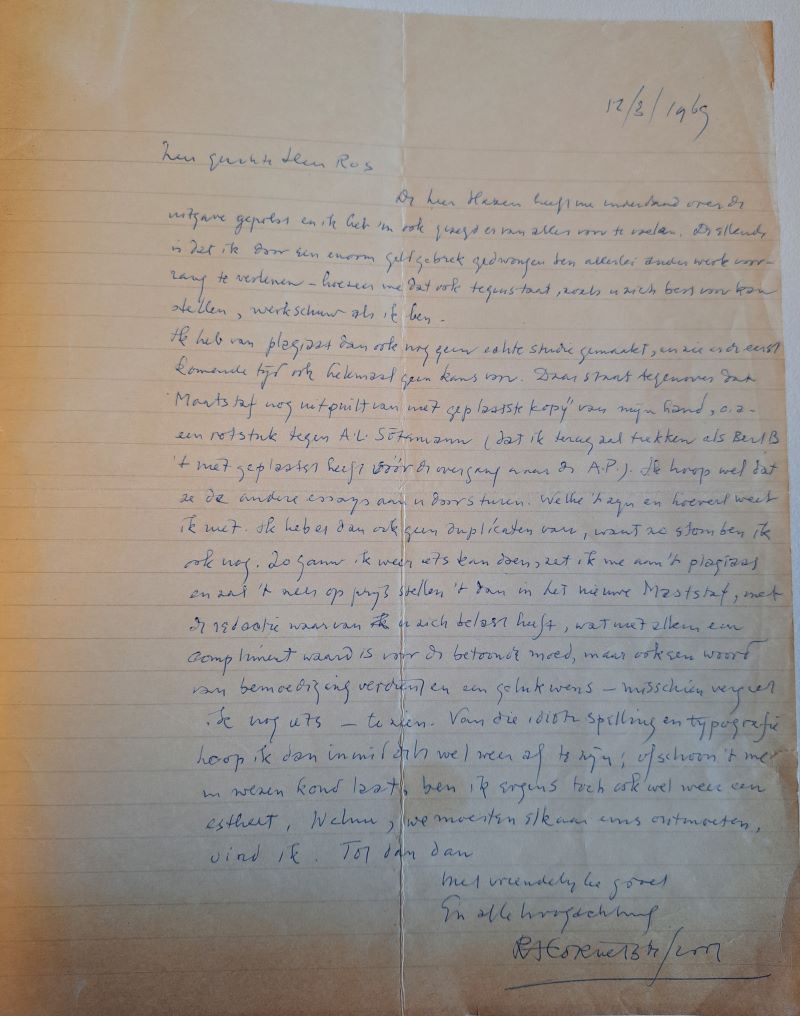 12/3/1969
Zeer geachte Heer Ros
De heer Hazen heeft me inderdaad over de
uitgave gepolst en ik heb 'm ook gezegd er van alles voor te voelen. De ellende
is dat ik door een enorm geldgebrek gedwongen ben allerlei ander werk voor-
rang te verlenen – hoezeer me dat ook tegenstaat, zoals u zich best voor kan
stellen, werkschuw als ik ben.
Ik heb van plagiaat dan ook nog geen echte studie gemaakt, en zie er de eerst
komende tijd ook helemaal geen kans voor. Daar staat tegenover dat
Maatstaf nog uitpuilt van niet geplaatste kopij van mijn hand, o.a.
een rotstuk tegen A.L. Sötemann (dat ik terug zal trekken als Bert B
't niet geplaatst heeft vóór de overgang naar de A.P.). Ik hoop wel dat
ze de andere essays aan u doorsturen. Welke 't zijn en hoeveel weet
ik niet. Ik heb er dan ook geen duplicaten van, want zo stom ben ik
ook nog. Zo gauw ik weer iets kan doen, zet ik me aan 't plagiaat
en zal 't zeer op prijs stellen 't dan in het nieuwe Maatstaf, met
de redactie waarvan u zich belast heeft, wat niet alleen een
compliment waard is voor de betoonde moed, maar ook een woord
van bemoediging verdient en een gelukwens – misschien vergeet
ik nog iets – te zien. Van die idiote spelling en typografie
hoop ik dan inmiddels wel weer af te zijn; ofschoon 't me
in wezen koud laat, ben ik ergens toch ook wel weer een
estheet. Welnu, we moesten elkaar eens ontmoeten,
vind ik. Tot dan dan
Met vriendelijke groet
En alle hoogachting